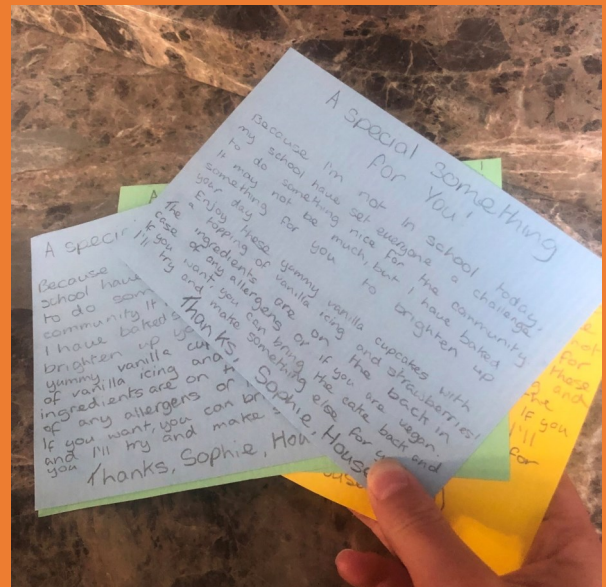 A special something
for You!
Because I'm not in school today,
my school have set everyone a challenge
to do something nice for the community.
It may not be much, but I have baked
something for you to brighten up
your day.
Enjoy these yummy vanilla cupcakes with
a topping of vanilla icing and strawberries!
The ingredients are on the back in
case of any allergens or if you are vegan.
If you want, you can bring the cake back and
I'll try and make something else for
Thanks, Sophie, House
A speci
Because
school hav
to do som
community It
I have baked
brighten up y
yummy vanilla cu
of vanilla icing and
ingredients are on t
of any allergens or
If you want, you can br
and I'll try and make
you
Thanks, Sophie, Hou
for
these
and
If you
I'll
for